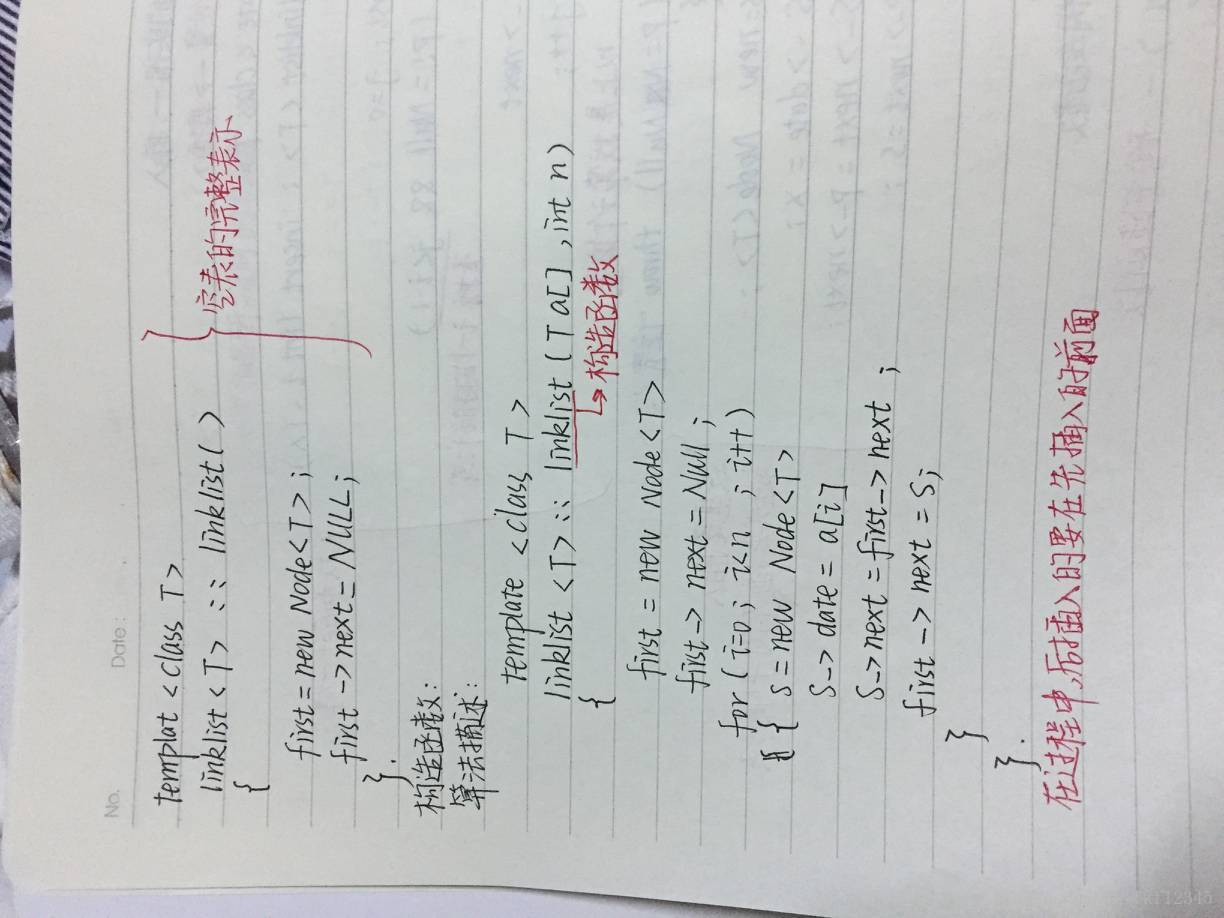 No. Date:
templat <class T>
linklist <T> :: linklist( )
{
空表的完整表示
first = new Node<T>;
first -> next = NULL;
}.
构造函数:
算法描述:
template <class T>
linklist <T> :: linklist (T a[] , int n)
{
构造函数
first = new Node<T>
first -> next = Null ;
for ( i=0 ; i<n ; i++ )
{ s = new Node<T>
S -> date = a[i]
S -> next = first -> next ;
first -> next = S;
}
}.
在过程中,后插入的要在先插入的前面